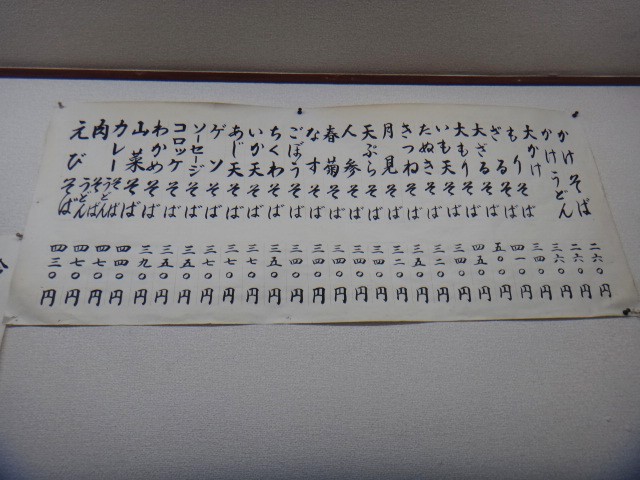 かけそば 二六〇円
かけうどん 二六〇円
大かけそば 三六〇円
もりそば 三四〇円
ざるそば 四一〇円
大ざるそば 五〇〇円
大もりそば 四五〇円
いも天そば 三四〇円
たぬきそば 三二〇円
きつねそば 三五〇円
月見そば 三二〇円
天ぷらそば 円
人参そば 三四〇円
春菊そば 三四〇円
なすそば 三四〇円
ごぼうそば 三四〇円
ちくわそば 三五〇円
いか天そば 三七〇円
あじ天そば 三七〇円
ゲソそば 三七〇円
ソーセージそば 三五〇円
コロッケそば 三五〇円
わかめそば 三九〇円
山菜そば 四四〇円
カレーそばうどん 四七〇円
肉そばうどん 四七〇円
えびそば 四三〇円